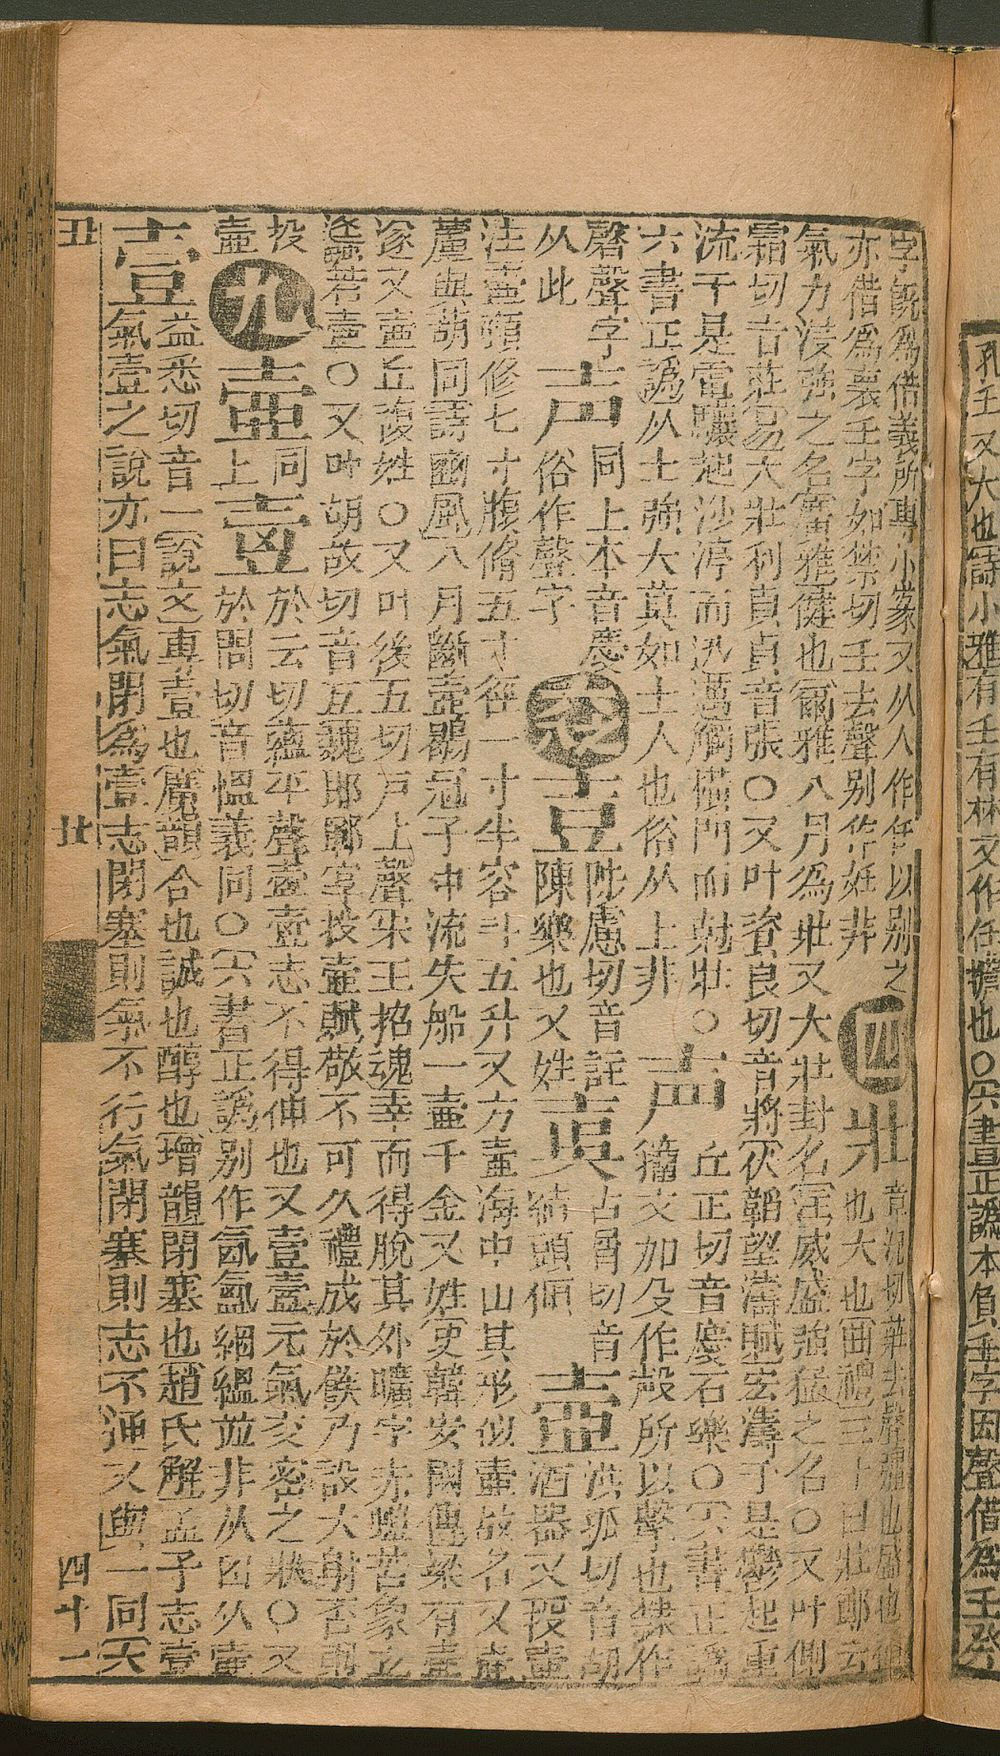 孔壬又大也詩小雅有壬有林又作任擔也○六書正譌本負壬字因聲借為壬癸
字旣為借義所專小篆又从人作任以别之
亦借為褱壬字如禁切壬去聲别作妊非
四
壯
章況切莊去聲彊也盛也
也大也曲禮三十曰壯鄭云
氣力浸強之名廣雅健也爾雅八月為壯又大壯卦名註威盛强猛之名○又叶側
霜切音莊易大壯利貞貞音張○又叶資良切音將伏韜望濤賦宏濤于是鬱起重
流于是電驤起沙渟而迅邁觸橫門而尅壯○
声
丘正切音慶石樂○六書正譌
六書正譌从土强大莫如士人也俗从上非
声
籀文加殳作殸所以擊也隸作
磬聲字
声
同上本音慶
从此
俗作聲字
六
壴
陟慮切音註
陳樂也又姓
㚖
古屑切音
結頭傾
壺
洪孤切音胡
酒器又投壺
注壺頸修七寸腹脩五寸徑一寸半容斗五升又方壺海中山其形似壺故名又壺
蘆與葫同詩豳風八月斷壺鶡冠子中流失船一壺千金又姓史韓安國傳梁有壺
遂又壺丘複姓○又叶後五切戸上聲宋玉招魂幸而得脫其外曠宇赤螘若象玄
蠭若壺○又叶胡故切音互魏邯鄲淳投壺賦敬不可久禮成於飫乃設大射否則
投
壺
九
壷
同
上
壹
於云切蘊平聲壼壹志不得伸也又壹壼元氣交密之狀○又
於問切音愠義同○六書正譌别作氤氳絪縕並非从凶从壺
壹
益悉切音一說文專壹也廣韻合也誠也醇也增韻閉塞也趙氏解孟子志壹
氣壹之說亦曰志氣閉為壹志閉塞則氣不行氣閉塞則志不通又與一同六
丑
丗
四十一